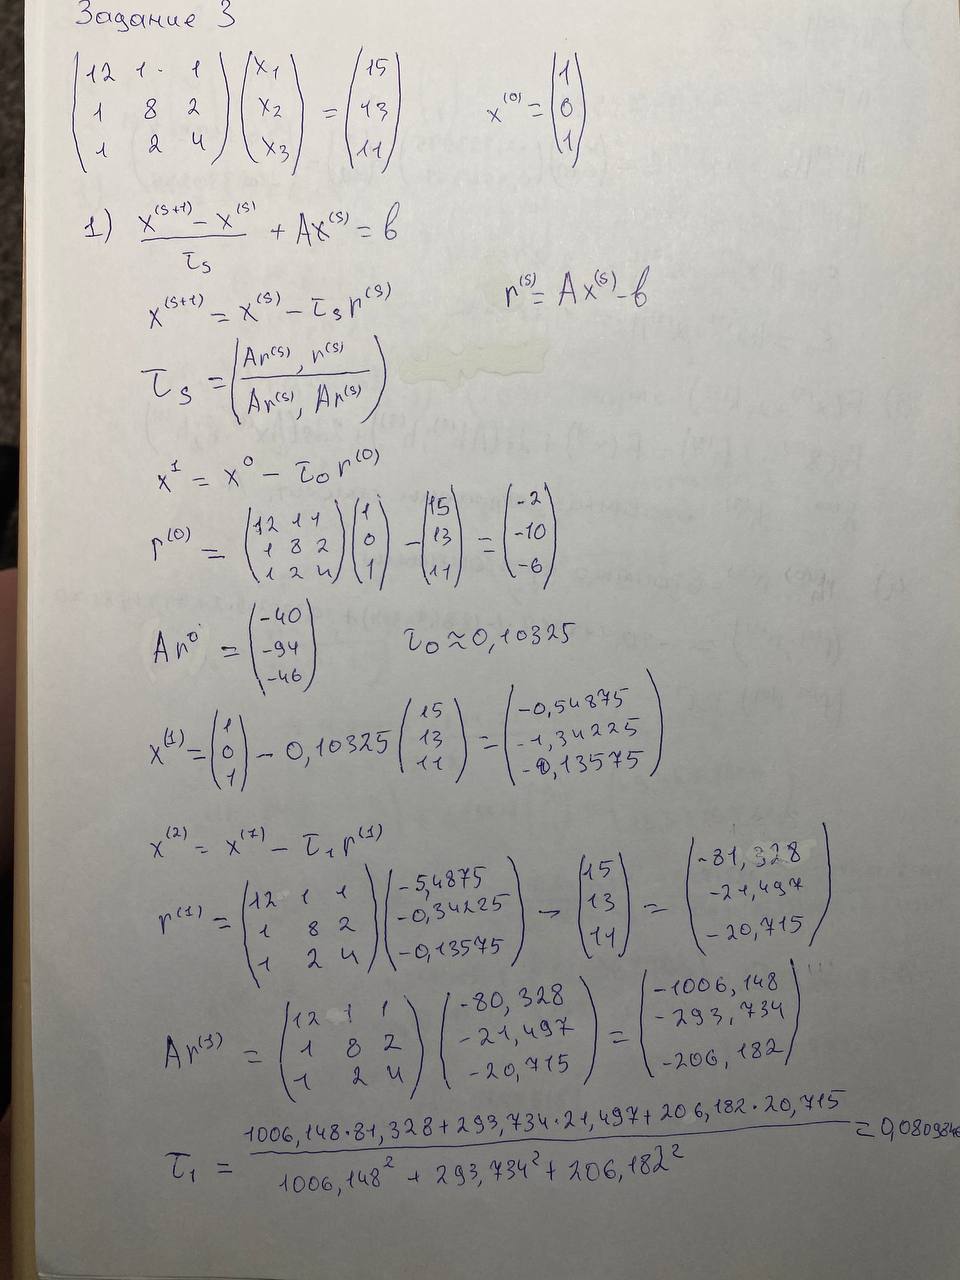 Задание 3
(12 1 1; 1 8 2; 1 2 4) (x₁; x₂; x₃) = (15; 13; 11)   x⁽⁰⁾ = (1; 0; 1)
1) (x⁽ˢ⁺¹⁾ – x⁽ˢ⁾)/τₛ + Ax⁽ˢ⁾ = b
x⁽ˢ⁺¹⁾ = x⁽ˢ⁾ – τₛ r⁽ˢ⁾   r⁽ˢ⁾ = Ax⁽ˢ⁾ – b
τₛ = (Ar⁽ˢ⁾, r⁽ˢ⁾ / Ar⁽ˢ⁾, Ar⁽ˢ⁾)
x¹ = x⁰ – τ₀ r⁽⁰⁾
r⁽⁰⁾ = (12 1 1; 1 8 2; 1 2 4) (1; 0; 1) – (15; 13; 11) = (-2; -10; -6)
Ar⁰ = (-40; -94; -46)   τ₀ ≈ 0,10325
x⁽¹⁾ = (1; 0; 1) – 0,10325 (15; 13; 11) = (-0,54875; -1,34225; -0,13575)
x⁽²⁾ = x⁽¹⁾ – τ₁ r⁽¹⁾
r⁽¹⁾ = (12 1 1; 1 8 2; 1 2 4) (-5,4875; -0,34225; -0,13575) – (15; 13; 11) = (-81,328; -21,497; -20,715)
Ar⁽¹⁾ = (12 1 1; 1 8 2; 1 2 4) (-80,328; -21,497; -20,715) = (-1006,148; -293,734; -206,182)
τ₁ = (1006,148·81,328 + 293,734·21,497 + 206,182·20,715) / (1006,148² + 293,734² + 206,182²) = 0,0809846